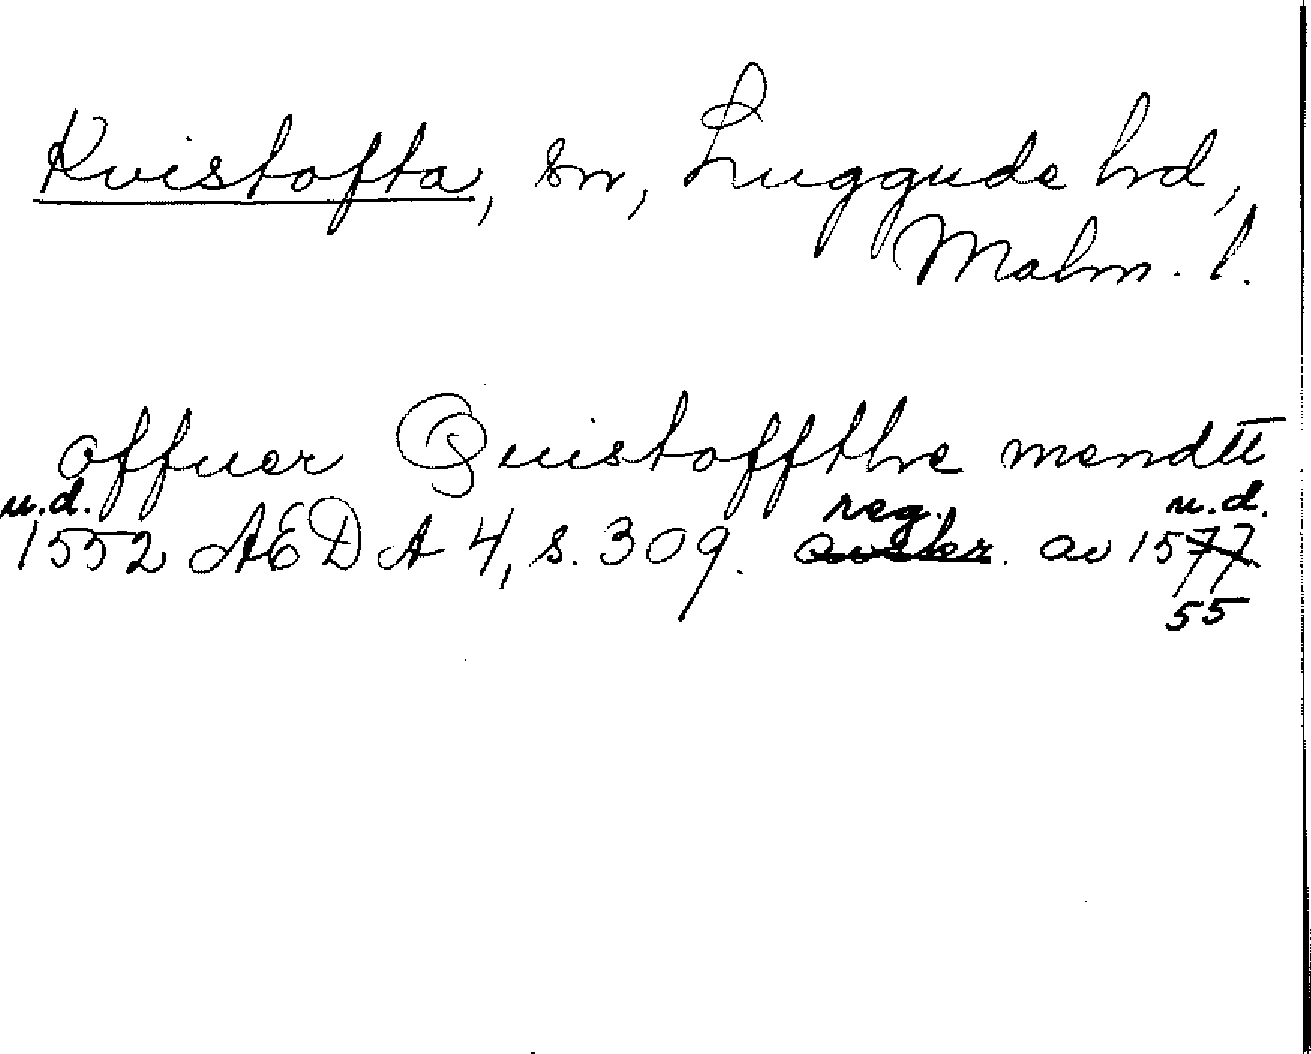 Kvistofta, sn, Luggude hd,
Malm. l.
offuer Quistoffthe mendtt
u.d. reg. u.d.
1552 AEDA 4, s. 309. avskr. av 1577
55